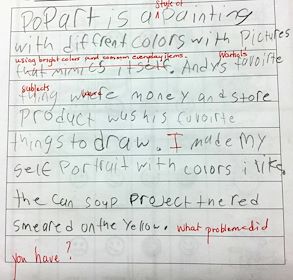 style of
PoPart is a painting
with diffrent colors with Pictures
using bright colors and common everyday items. Warhol's
that mimics itself. Andys favoirte
subjects were
thing where money and store
Product was his favoirte
things to draw. I made my
self Portrait with colors i like.
the can soup Project the red
smeared on the Yellow. What problems did
you have?